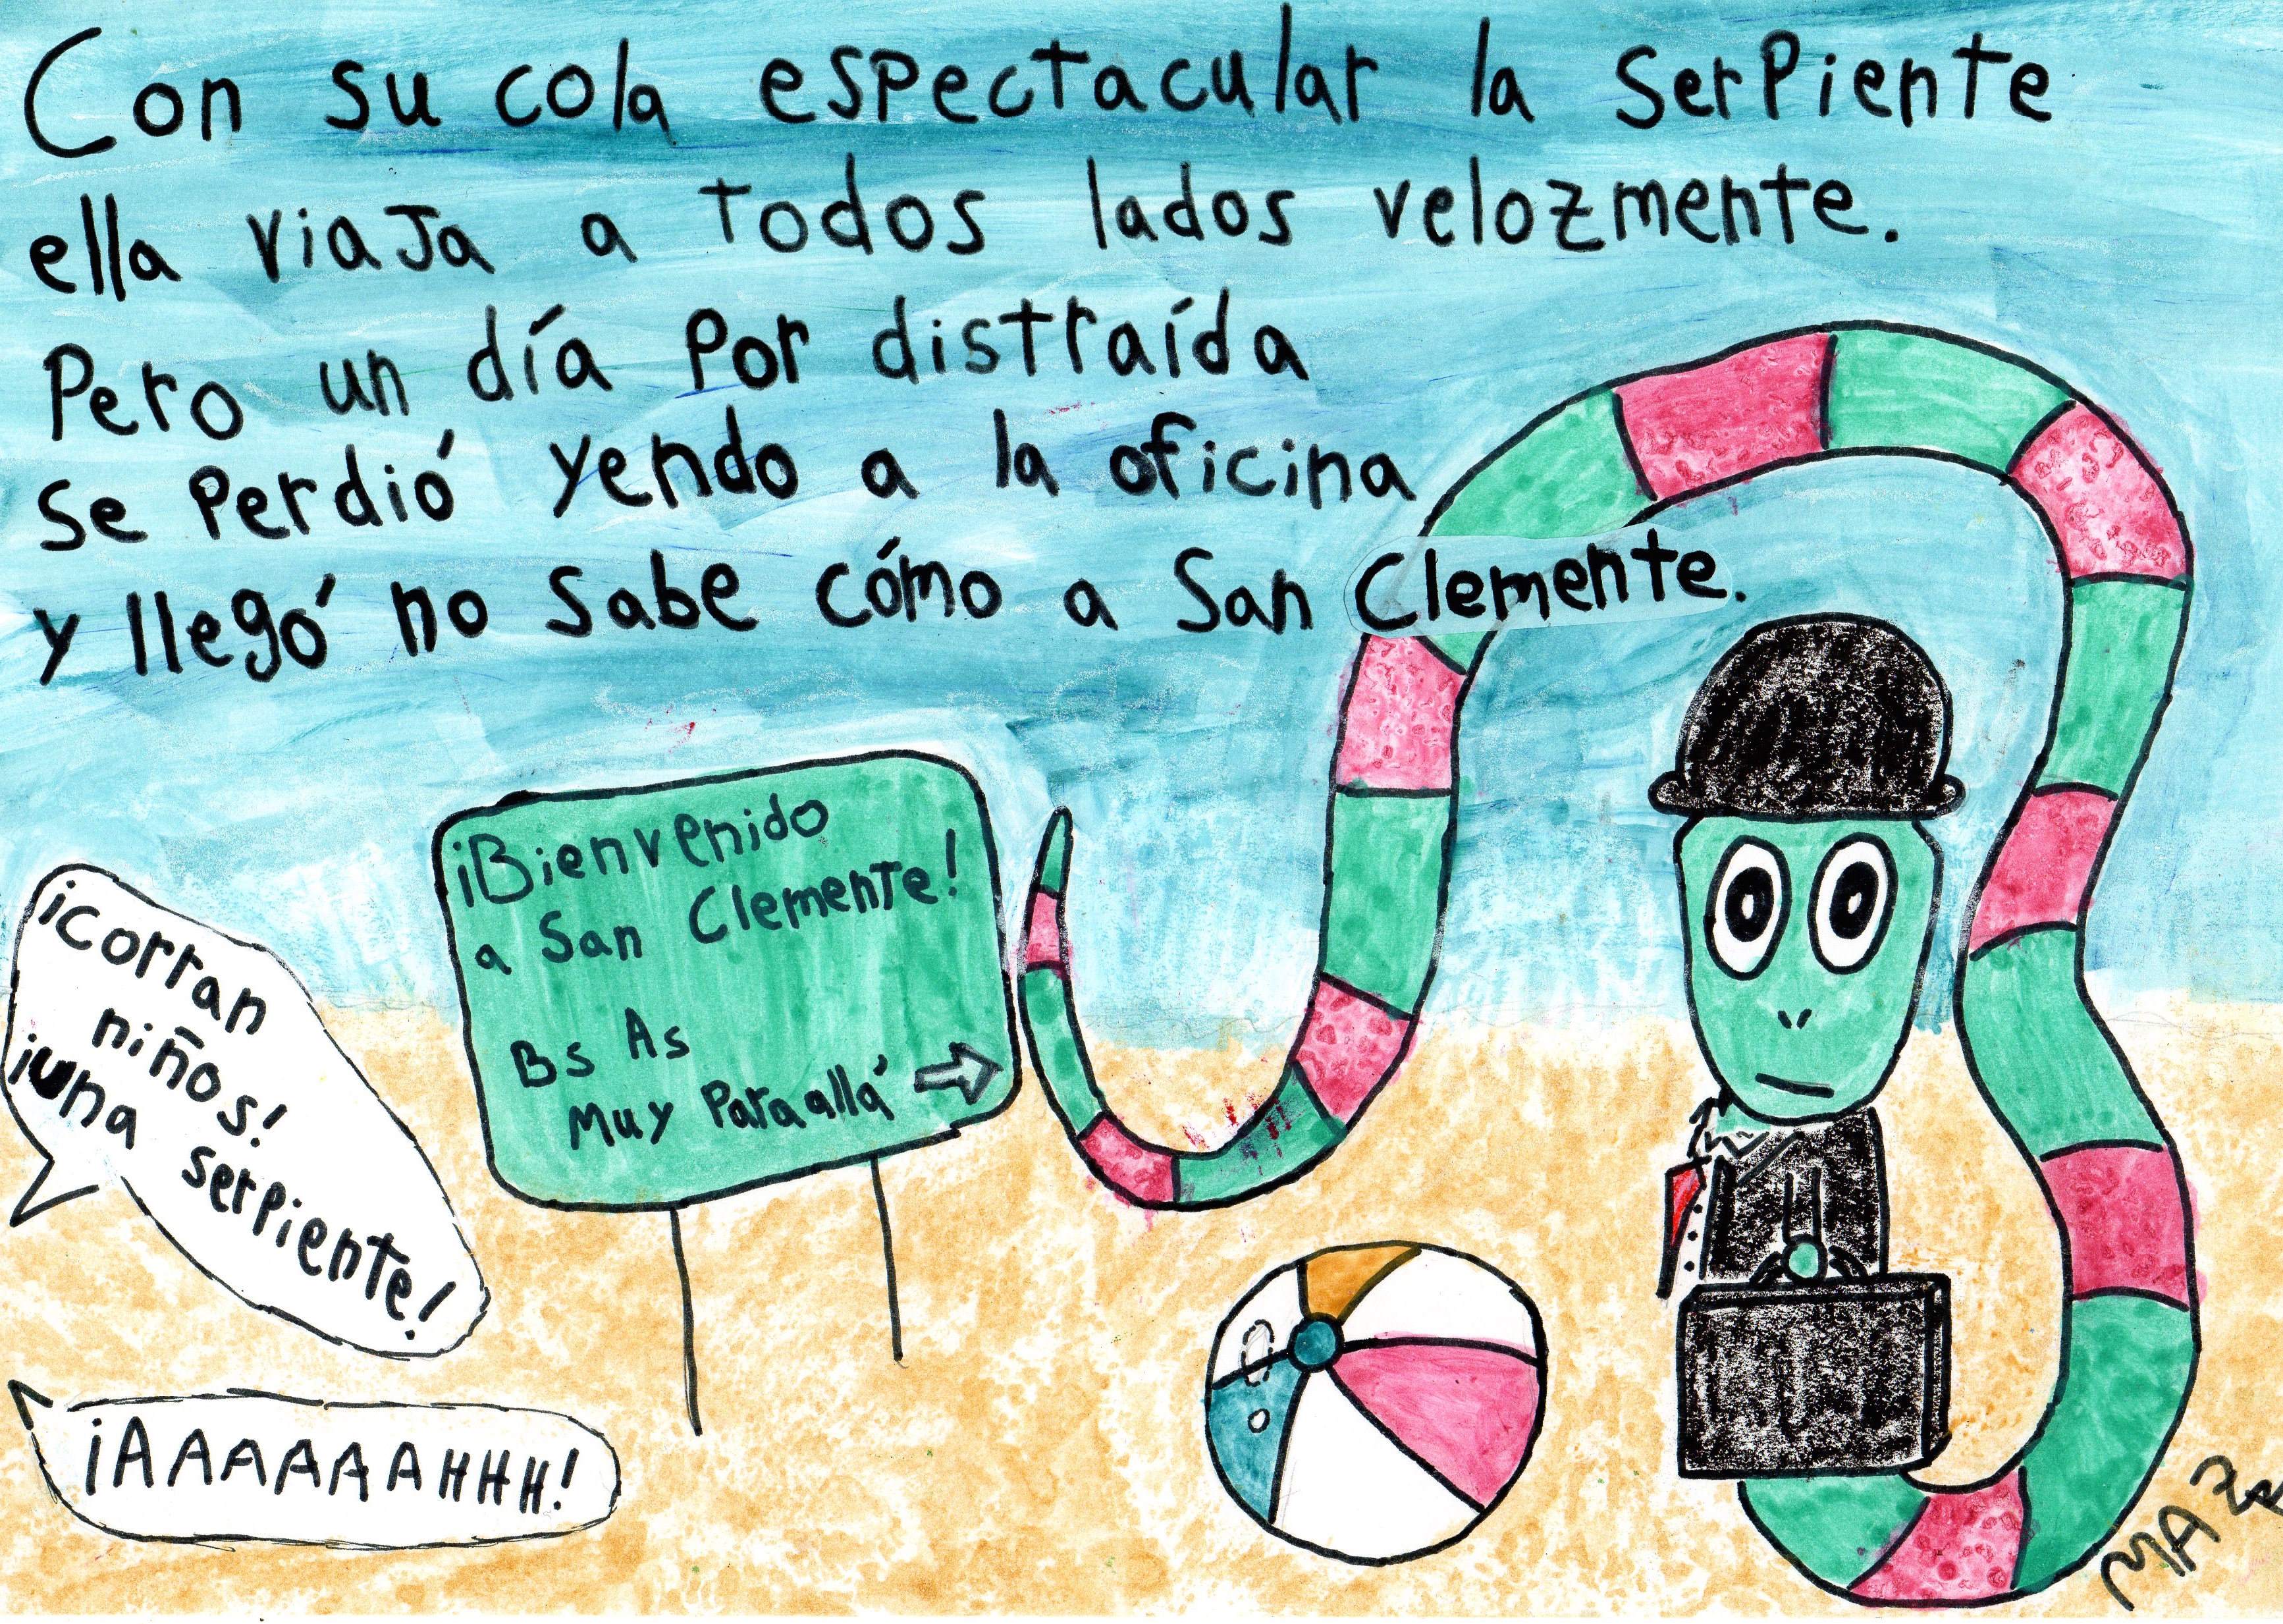 Con su cola espectacular la serpiente
ella viaja a todos lados velozmente.
Pero un día por distraída
se perdió yendo a la oficina
y llegó no sabe cómo a San Clemente.
¡Bienvenido
a San Clemente!
Bs As
muy para allá
¡Corran
niños!
¡una
serpiente!
¡AAAAAAAHHH!